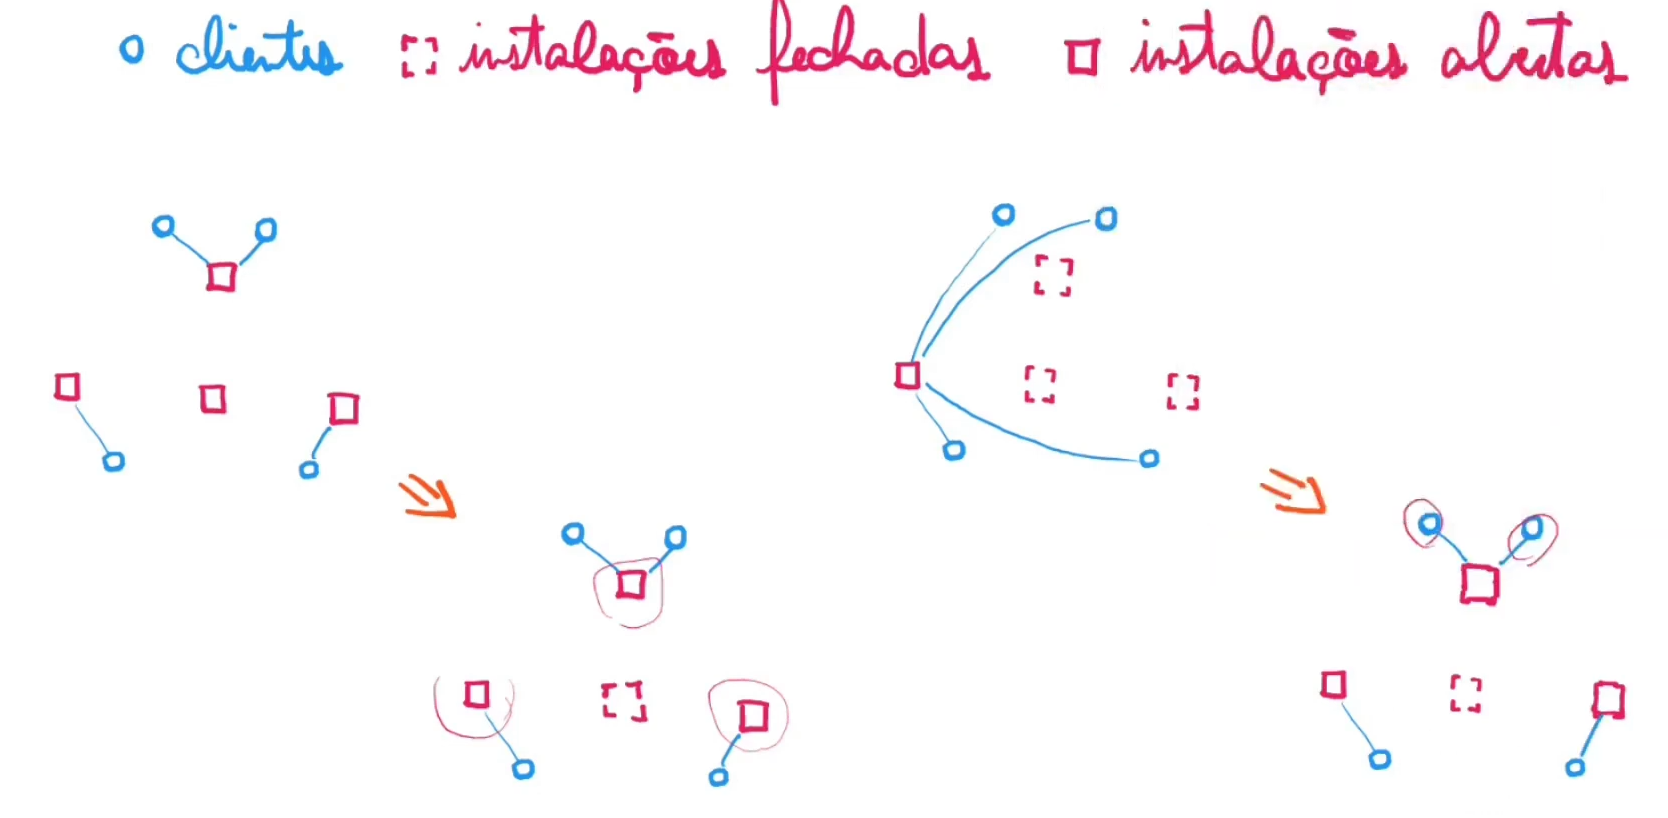 clientes instalações fechadas instalações abertas